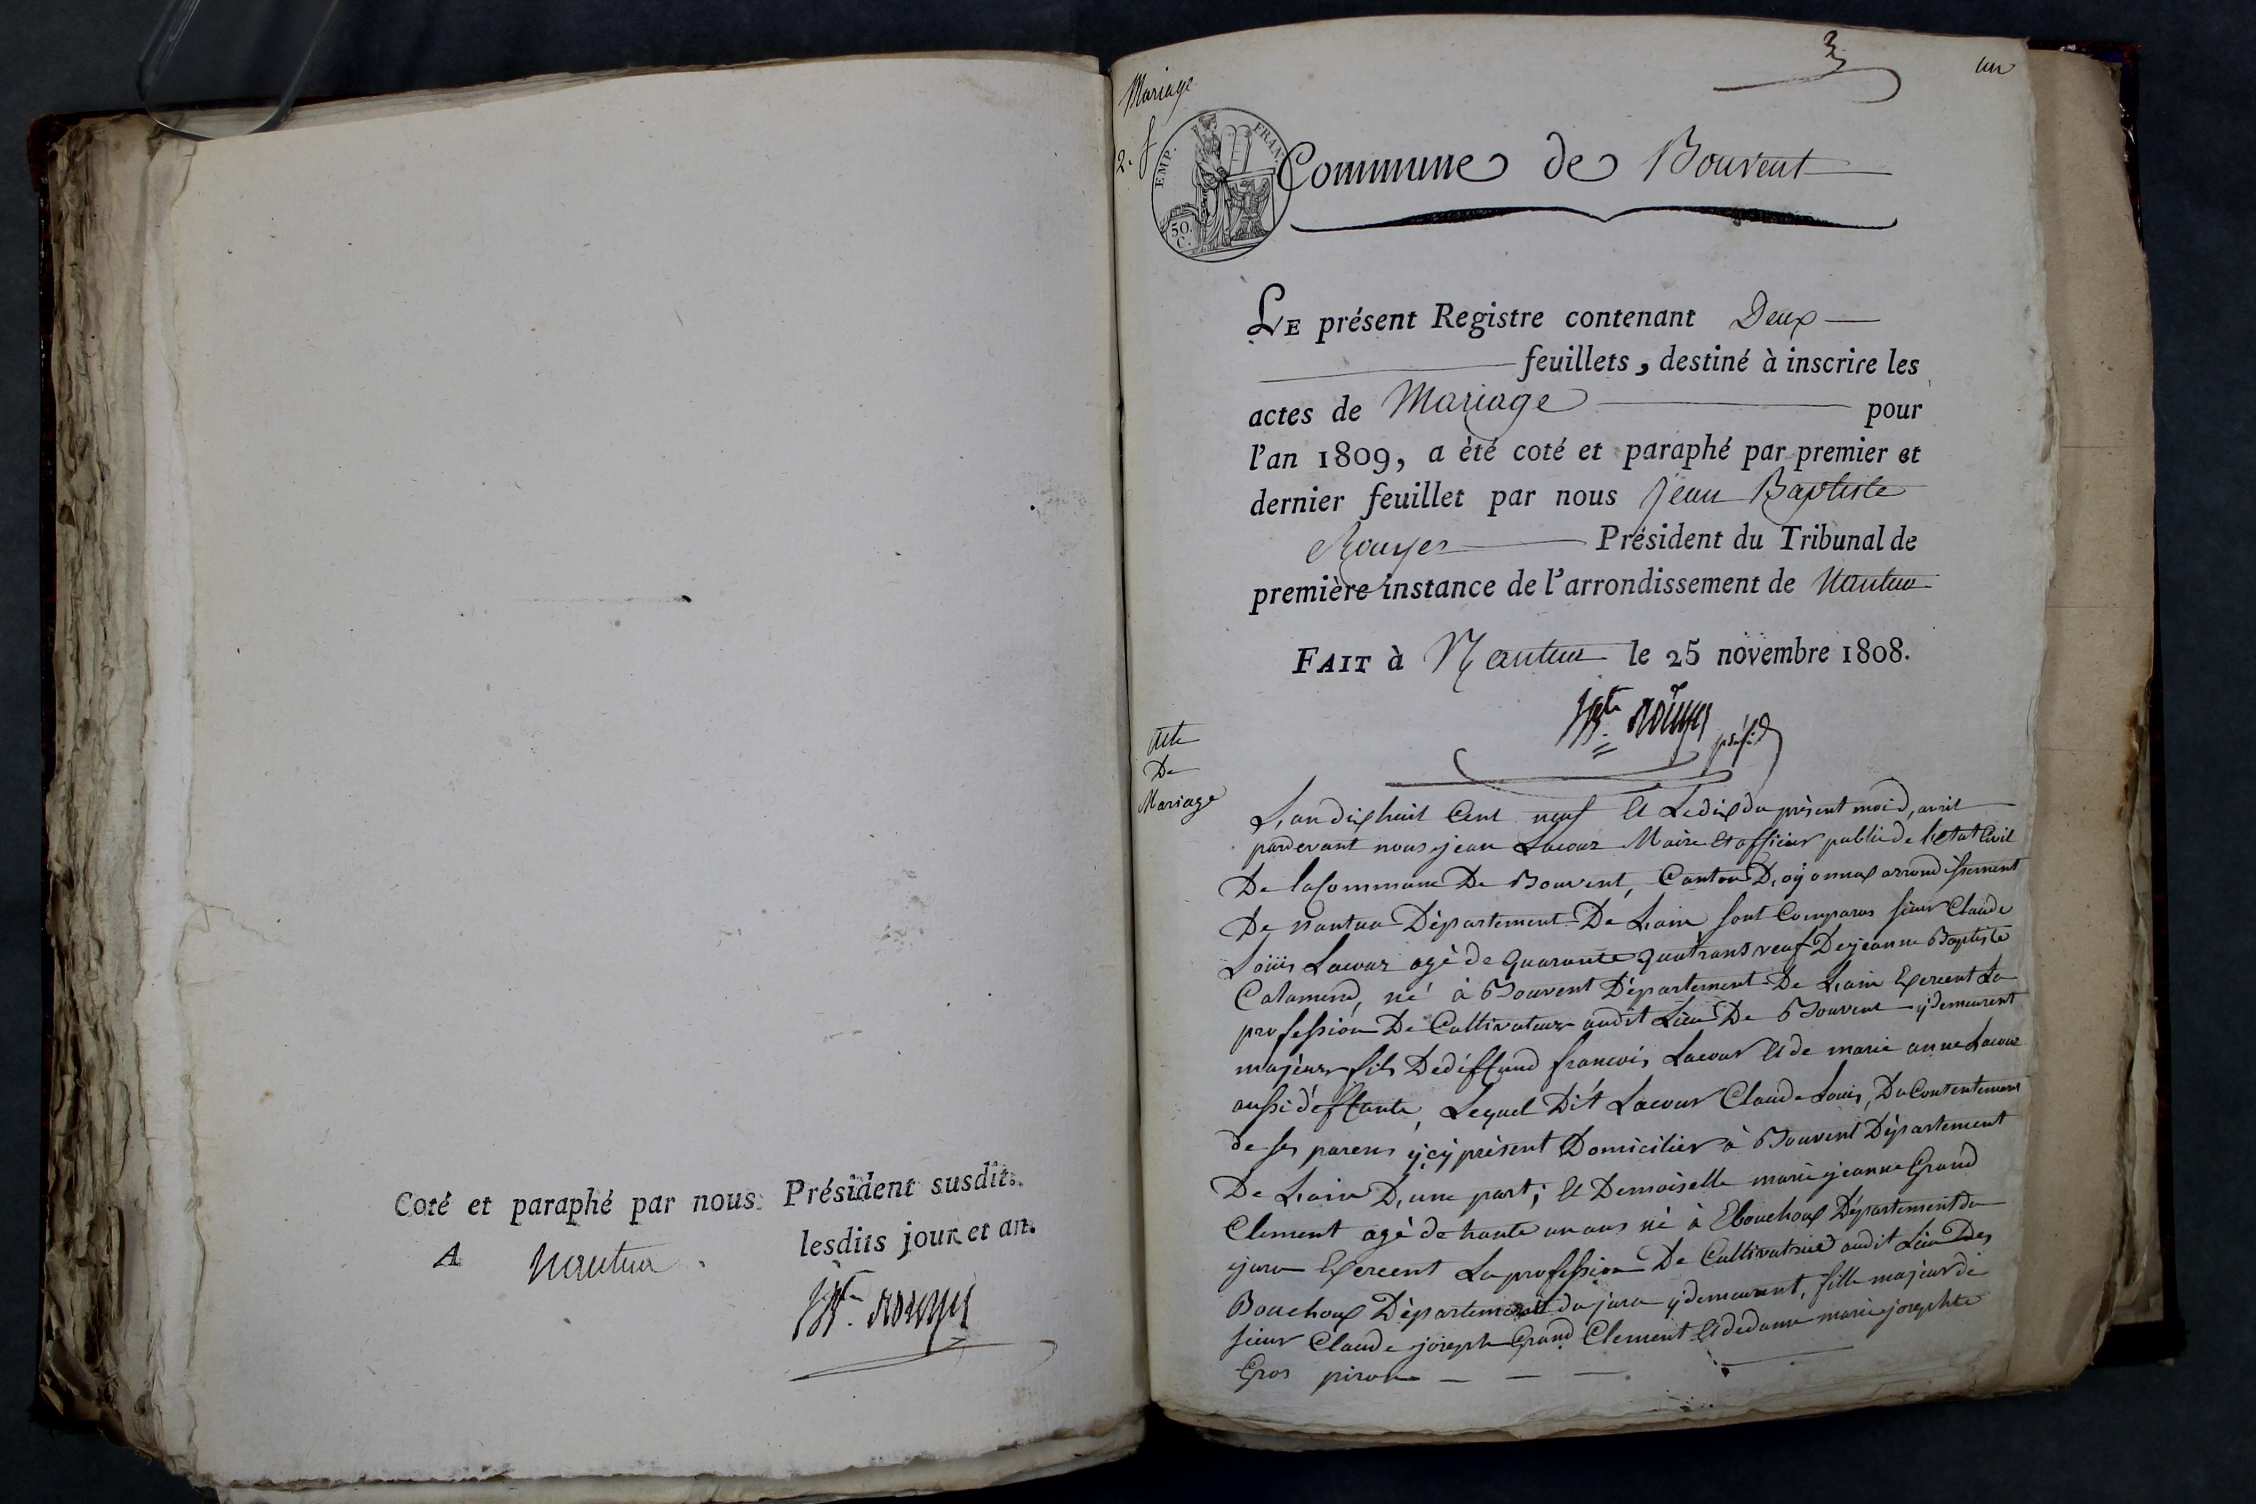 Coté et paraphé par nous Président susdit.
lesdits jour et an.
A Nantua
Jn Bte rouyer
Mariage
2. f
3
un
EMP. FRAN.
50. C.
Commune de Bouvent
LE présent Registre contenant Deux
feuillets, destiné à inscrire les
actes de Mariage pour
l'an 1809, a été coté et paraphé par premier et
dernier feuillet par nous jean Baptiste
Rouyer Président du Tribunal de
première instance de l'arrondissement de Nantua
FAIT à Nantua le 25 novembre 1808.
rouyer présid
Acte
De
Mariage
L,an dix huit Cent neuf et Le dix du présent moi d,avril
pardevant nous jean Lacour Maire et officier public de l'état Civil
De la Commune De Bouvent, Canton D,oyonnax arrondissement
De nantua Département De L,ain, sont Comparus sieur Claude
Loüis Lacour agé de quarante quatr'ans veuf De jeanne Baptiste
Calamend, né à Bouvent Département De L,ain Exercent La
profession De Cultivateur audit Lieu De Bouvent y demeurent
majeur fils De déffund francois Lacour et de marie anne Lacour
aussi déffunte, Lequel Dit Lacour Claude Louis, Du Contentement
de ses parens ycy présent Domicilier à Bouvent Département
De L,ain D,une part; et Demoiselle marie jeanne Grand
Clement agé de trante un ans né à Ebouchoux Département du
jura Exercent La profession De Cultivatrice audit Lieu Des
Bouchoux Département du jura y demeurent, fille majeur de
sieur Claude joseph Grand Clement et de dame marie josephte
Gros piron